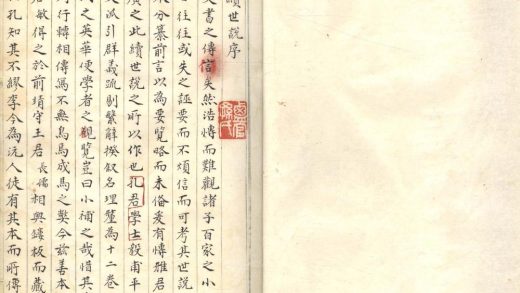 續世說序
書之傳信矣然浩博而難觀諸子百家之小
往往或失之誣要而不煩信而可考其世說
分纂前言以為要覽略而未備爰有博雅君
廣之此續世說之所以作也孔君學士毅甫平
派引群義疏剔繁辭揆叙名理釐為十二卷
之英華便學者之觀覽豈曰小補之哉惜其
行轉相傳寫不無烏焉成馬之獘今兹善本
敏得之於前靖守王君長孺相與鏤板而藏
孔知其不繆李今為沅人徒有其本而所傳